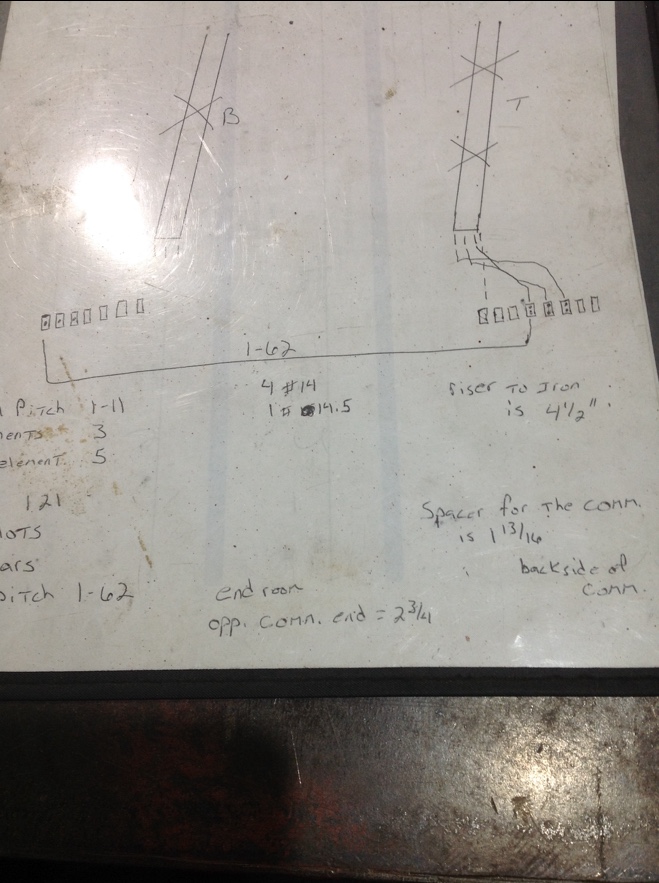 B
T
1-62
4 #14
1 # 14.5
Riser To Iron
is 4 1/2"
Pitch 1-11
ments 3
element. 5
121
lots
ars
pitch 1-62
Spacer for The comm.
is 1 13/16
backside of
Comm.
end room
opp. Comm. end = 2 3/4